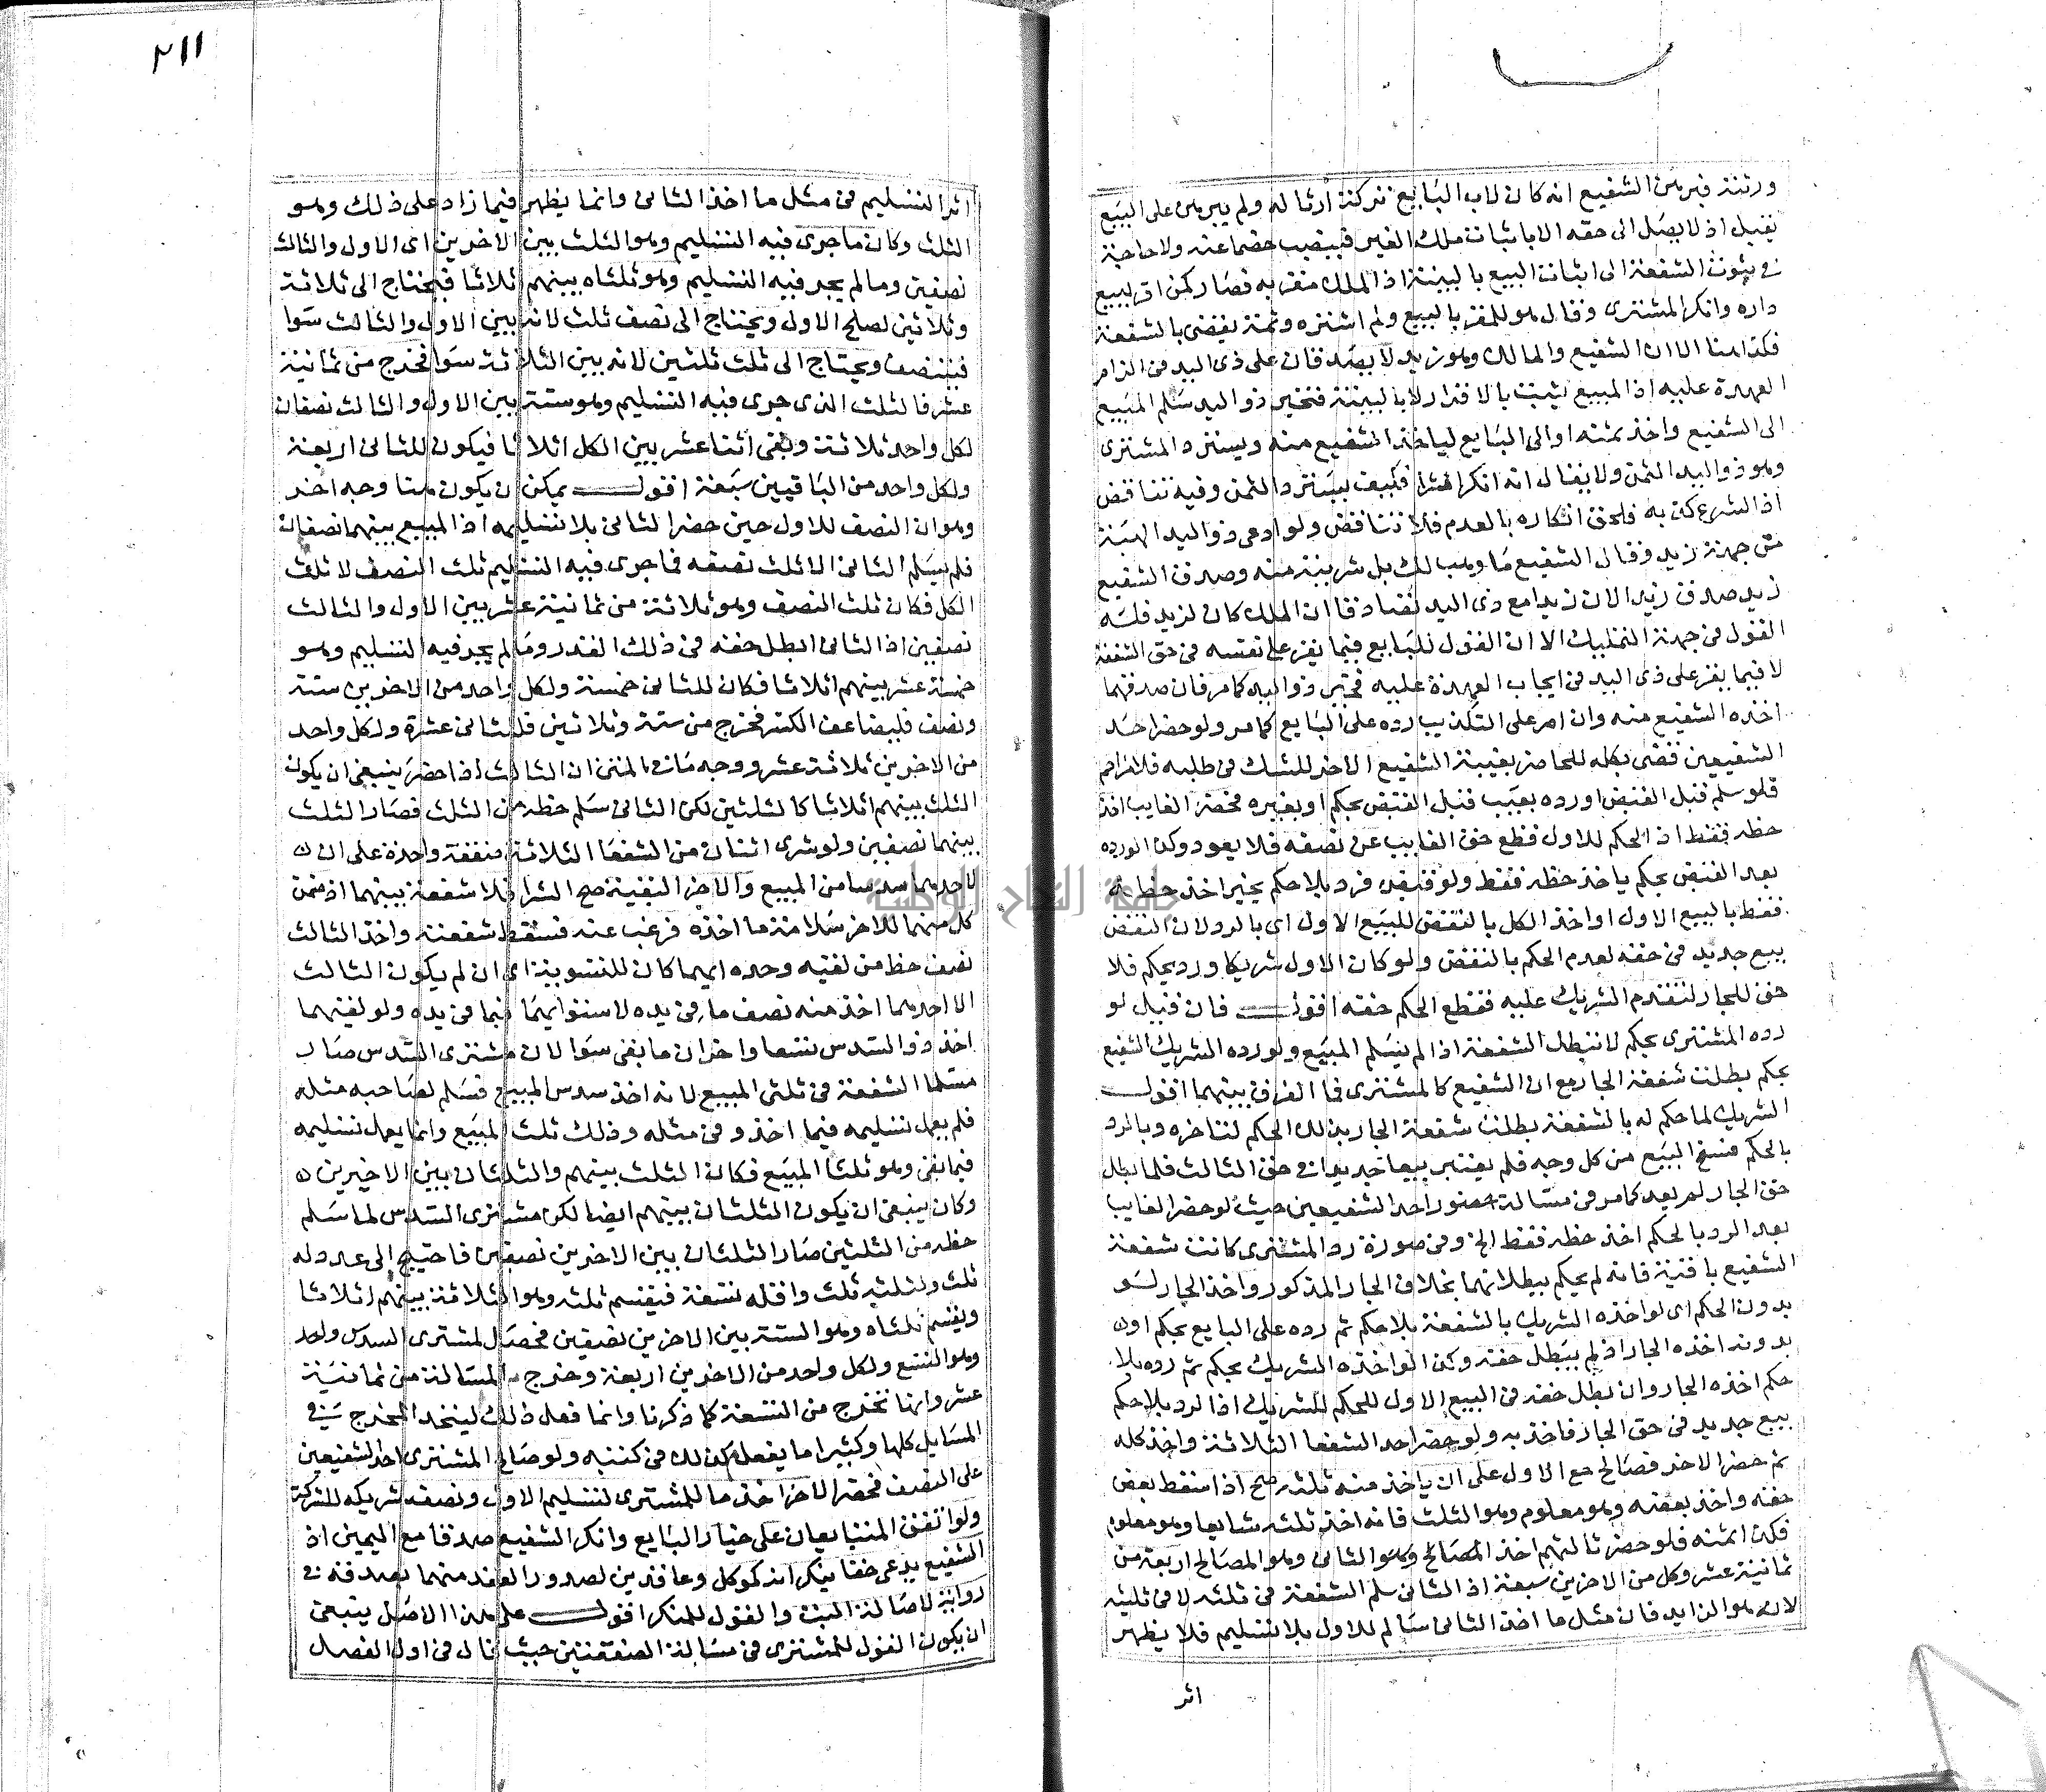 ورثته فبرهن الشفيع انه كان لاب البايع تركته ارثا له ولم يبرهن على البيع
تقبل اذ لا يصل الى حقه الا باثبات ملك الغير فينصب خصما عنه ولا حاجة
فى ثبوت الشفعة الى اثبات البيع بالبينة اذ الملك مقر به فصار كمن اقر ببيع
داره وانكر المشترى وقال هو للمقر بالبيع ولم اشتره وثمة يقضى بالشفعة
فكذا هنا الا ان الشفيع والمالك وهو زيد لا يصدقان على ذى اليد فى الزام
العهدة عليه اذ المبيع يثبت بالاقرار لا بالبينة فتخير ذو اليد سلم المبيع
الى الشفيع واخذ ثمنه او الى البايع لياخذ الشفيع منه ويسترد المشترى
وهو ذو اليد الثمن ولا يقال انه انكر الشرا فكيف يسترد الثمن وفيه تناقض
اذ الشرع كذبه فلحق انكاره بالعدم فلا تناقض ولو ادعى ذو اليد الهبة
من جهة زيد وقال الشفيع ما وهب لك بل شريته منه وصدق الشفيع
زيد صدق زيد الان زيدا مع ذى اليد تصادقا ان الملك كان لزيد فله
القول فى جهة التمليك الا ان القول للبايع فيما يقر على نفسه فى حق الشفعة
لا فيما يقر على ذى اليد فى ايجاب العهدة عليه فتخير ذو اليد كما مر فان صدقهما
اخذه الشفيع منه وان امر على التكذيب رده على البايع كما مر ولو حضر احد
الشفيعين قضى بكله للحاضر بغيبة الشفيع الاخر للشك فى طلبه فلا يزاحم
فلو سلم قبل القبض او رده بعيب قبل القبض بحكم او بغيره فحضر الغايب اخذ
حظه فقط اذ الحكم للاول قطع حق الغايب عن نصفه فلا يعود وكذا لو رده
بعد القبض بحكم ياخذ حظه فقط ولو قبضه فرد بلا حكم يخير اخذ حظه
فقط بالبيع الاول او اخذ الكل بالنقض للبيع الاول اى بالرد لان النقض
بيع جديد فى حقه لعدم الحكم بالنقض ولو كان الاول شريكا ورد بحكم فلا
حق للجار لتقدم الشريك عليه فقطع الحكم حقه اقول فان قيل لو
رده المشترى بحكم لا تبطل الشفعة اذا لم يسلم المبيع ولو رده الشريك الشفيع
بحكم بطلت شفعة الجار مع ان الشفيع كالمشترى فما الفرق بينهما اقول
الشريك لما حكم له بالشفعة بطلت شفعة الجار بذلك الحكم لتاخره وبالرد
بالحكم فسخ البيع من كل وجه فلم يعتبر بيعا جديدا فى حق الثالث فلما بطل
حق الجار لم يعد كما مر فى مسالة حضور احد الشفيعين حيث لو حضر الغايب
بعد الرد بالحكم اخذ حظه فقط الخ وفى صورة رد المشترى كانت شفعة
الشفيع باقية فانه لم يحكم ببطلانها بخلاف الجار المذكور واخذ الجار لو
بدون الحكم اى لو اخذه الشريك بالشفعة بلا حكم ثم رده على البايع بحكم او
بدونه اخذه الجار اذ لم يبطل حقه وكذا لو اخذه الشريك بحكم ثم رده بلا
حكم اخذه الجار وان بطل حقه فى البيع الاول للحكم للشريك اذ الرد بلا حكم
بيع جديد فى حق الجار فاخذ به ولو حضر احد الشفعا الثلاثة واخذ كله
ثم حضر الاخر فصالح مع الاول على ان ياخذ منه ثلثه صح اذ اسقط بعض
حقه واخذ بعضه وهو معلوم وهو الثلث فانه اخذ ثلثه شايعا وهو معلوم
فكذا ثمنه فلو حضر ثالثهم اخذ المصالح وهو الثانى وهو المصالح اربعة من
ثمانية عشر وكل من الاخرين سبعة اذ الثانى سلم الشفعة فى ثلثه لا فى ثلثيه
لانه هو الزايد فان مثل ما اخذ الثانى سالم للاول بلا تسليم فلا يظهر
اثر
٢١١
اثر التسليم فى مثل ما اخذ الثانى وانما يظهر فيما زاد على ذلك وهو
الثلث وكان ما جرى فيه التسليم وهو الثلث بين الاخرين اى الاول والثالث
نصفين وما لم يجر فيه التسليم وهو ثلثاه بينهم ثلاثا فيحتاج الى ثلاثة
وثلاثين لصلح الاول ويحتاج الى نصف ثلث لانه بين الاول والثالث سوا
فيتنصف ويحتاج الى ثلث ثلثين لانه بين الثلاثة سوا فخرج من ثمانية
عشر فالثلث الذى جرى فيه التسليم وهو ستة بين الاول والثالث نصفان
لكل واحد ثلاثة وبقى اثنا عشر بين الكل اثلاثا فيكون للثانى اربعة
ولكل واحد من الباقيين سبعة اقول يمكن ان يكون هنا وجه اخر
وهو ان النصف للاول حين حضر الثانى بلا تسليمه اذ المبيع بينهما نصفان
فلم يسلم الثانى الا ثلث نصفه فما جرى فيه التسليم ثلث النصف لا ثلث
الكل فكان ثلث النصف وهو ثلاثة من ثمانية عشر بين الاول والثالث
نصفين اذ الثانى ابطل حقه فى ذلك القدر وما لم يجر فيه التسليم وهو
خمسة عشر بينهم اثلاثا فكان للثانى خمسة ولكل واحد من الاخرين ستة
ونصف فليضاعف الكسر فخرج من ستة وثلاثين فللثانى عشرة ولكل واحد
من الاخرين ثلاثة عشر ووجه ما فى المتن ان الثالث اذا حضر ينبغى ان يكون
الثلث بينهم اثلاثا كالثلثين لكن الثانى سلم حظه من الثلث فصار الثلث
بينهما نصفين ولو شرى اثنان من الشفعا الثلاثة صفقة واحدة على ان
لاحدهما سدسا من المبيع والاخر البقية صح الشرا فلا شفعة بينهما اذ ضمن
كل منهما للاخر سلامة ما اخذه فرغب عنه فسقط شفعته واخذ الثالث
نصف حظ من لقيه وحده ايهما كان للتسوية اى ان لم يكون الثالث
الا احدهما اخذ منه نصف ما فى يده لاستوايهما فيما فى يده ولو لقيهما
اخذ ذو السدس تسعا واخران ما بقى سوا لان مشترى السدس صار
مسلما الشفعة فى ثلثى المبيع لانه اخذ سدس المبيع فسلم لصاحبه مثله
فلم يعمل تسليمه فيما اخذ وفى مثله وذلك ثلث المبيع وانما يعمل تسليمه
فيما بقى وهو ثلثا المبيع فكان الثلث بينهم والثلثان بين الاخيرين
وكان ينبغى ان يكون الثلثان بينهم ايضا لكن مشترى السدس لما سلم
حظه من الثلثين صار الثلثان بين الاخرين نصفين فاحتيج الى عدد له
ثلث ولثلثه ثلث واقله تسعة فيقسم ثلثه وهو الثلاثة بينهم اثلاثا
ويقسم ثلثاه وهو الستة بين الاخرين نصفين فحصل لمشترى السدس واحد
وهو التسع ولكل واحد من الاخرين اربعة وخرج المسالة من ثمانية
عشر وانها تخرج من التسعة كما ذكرنا وانما فعل ذلك ليتحد المخرج فى
المسايل كلها وكثيرا ما يفعل كذلك فى كتبه ولو صالح المشترى احد الشفيعين
على النصف فحضر الاخر اخذ ما للمشترى لتسليم الاول ونصف شريكه للشركة
ولو اتفق المتبايعان على خيار البايع وانكر الشفيع صدقا مع اليمين اذ
الشفيع يدعى حقا ينكرانه كوكل وعاقدين لصدور العقد منهما نصدقه فى
رواية لاصالة البت والقول للمنكر اقول على هذا الاصل ينبغى
ان يكون القول للمشترى فى مسالة الصفقتين حيث قال فى اول الفصل